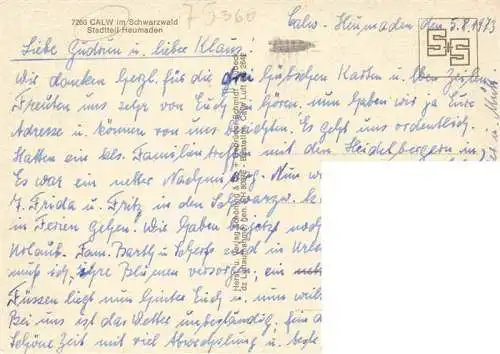 7260 CALW im Schwarzwald
Stadtteil Heumaden
75360
Calw-Heumaden den 5.8.1973
Liebe Gudrun u. lieber Klaus!
Wir danken Herzl. für die drei hübschen Karten u. lben Zeilen
Freuten uns sehr von Euch zu hören. nun haben wir ja Eure
Adresse u. können von uns berichten. Es geht uns ordentlich.
Hatten ein kl. Familientreffen mit den Heidelbergern in
Es war ein netter Nachmittag. Nun wo
T. Frida u. Fritz in den Schwarzw.
in Ferien gehen. Wir haben jetzt noch
Urlaub. Fam. Barth u. Scherf sind in Urla
muß ich ihre Blumen versorgen, ein
Füssen liegt nun hinter Euch u. nun
Bei uns ist das Wetter unbeständig, für
Schöne Zeit mit viel Abwechslung u.